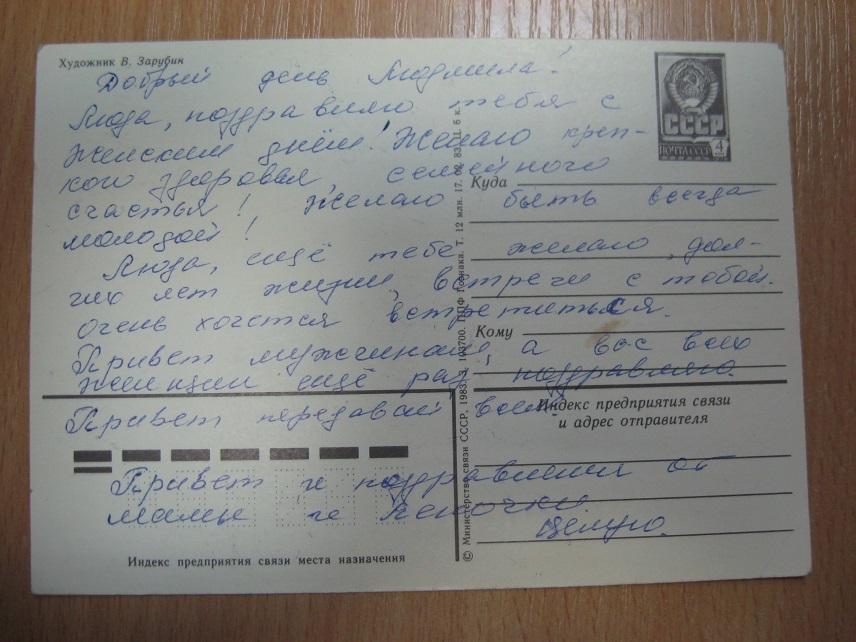 Художник В. Зарубин
Добрый день Людмила!
Люда, поздравляю тебя с
женским днём! Желаю креп-
кого здоровья, семейного
счастья! Желаю быть всегда
молодой!
Люда, ещё тебе желаю, дол-
гих лет жизни, встречи с тобой.
очень хочется встретиться.
Привет мужчинам, а вас всех
женщин ещё раз поздравляю.
Привет передавай всем.
Привет и поздравления от
мамы и
Целую.
СССР
ПОЧТА СССР 4
Куда
Кому
Индекс предприятия связи
и адрес отправителя
Индекс предприятия связи места назначения
© Министерство связи СССР, 1983. З. 103700. ППФ Гознака. Т. 12 млн. 17. 02. 83. Ц. 6 к.